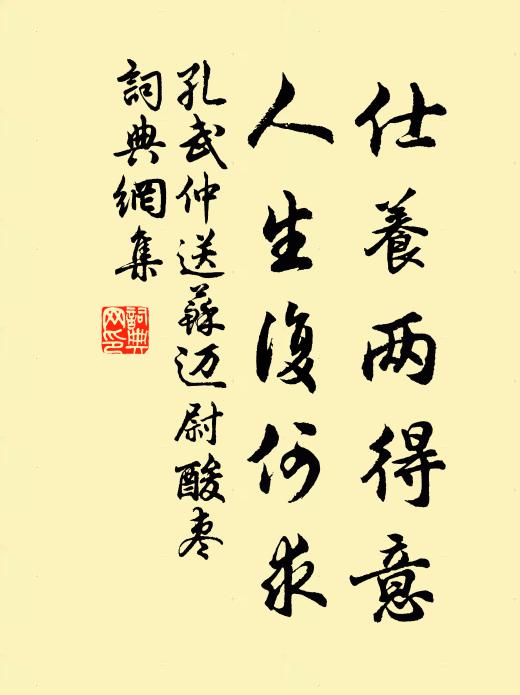 仕養两得意
人生復何求
孔武仲送蘇迈尉酸枣
詞典網集
詞典
网印